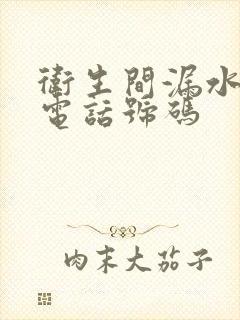 衛生間漏水
電話號碼
肉末大茄子